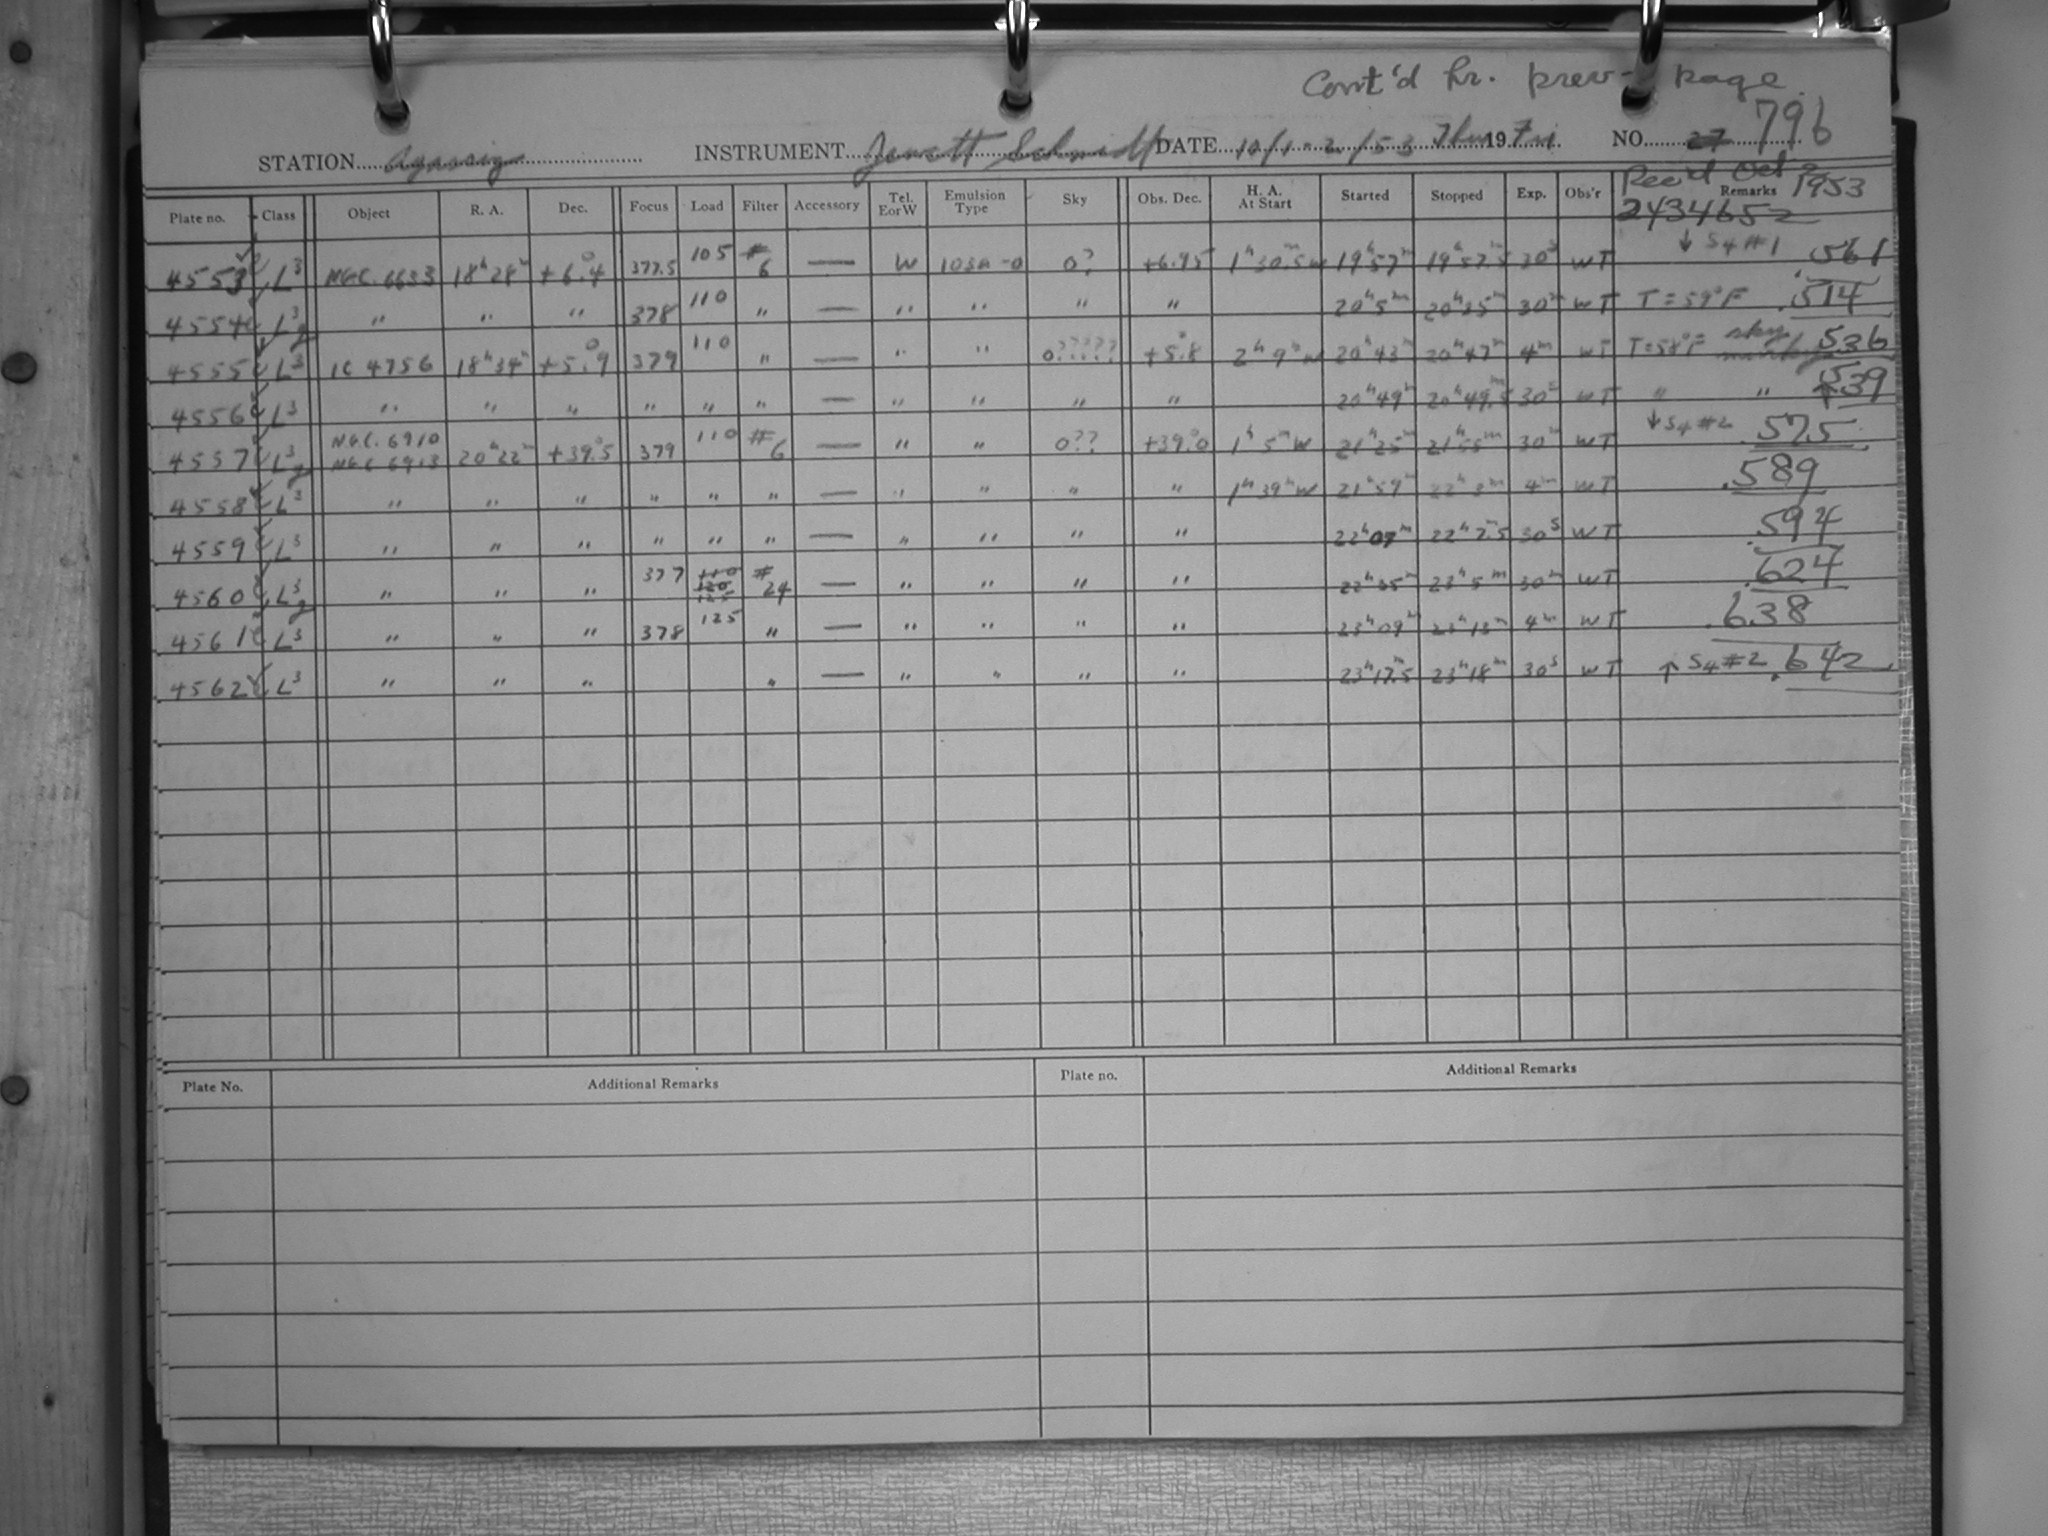 Cont'd fr. prev. page
STATION Agassiz INSTRUMENT Jewett Schmidt DATE 10/1-2/53 Thu 19 Fri. NO. 27 796
Rec'd Oct 1953
Plate no. Class Object R. A. Dec. Focus Load Filter Accessory Tel. E or W Emulsion Type Sky Obs. Dec. H. A. At Start Started Stopped Exp. Obs'r Remarks
2434652
4553 L3 NGC. 6633 18h 28m +6.4 377.5 105 #6 — W 103a-0 0? +6.45 1h 30.5m W 19h57m 19h57.5 30s WT ↓ S4 #1 561
4554 L3 " " " 378 110 " — " " " " 20h5m 20h35m 30m WT T=59°F .514
4555 L3 IC 4756 18h 34m +5.9 379 110 " — " " 0????? +5.8 2h 9m W 20h43m 20h47m 4m WT T=58°F sky murky .536
4556 L3 " " " " " " — " " " " 20h49m 20h49.5 30s WT " " ↑ .539
4557 L3 NGC. 6910 NGC 6913 20h22m +39.5 379 110 #6 — " " 0?? +39.0 1h 5m W 21h25m 21h55m 30m WT ↓ S4 #2 .575
4558 L3 " " " " " " — " " " " 1h 39m W 21h59m 22h3m 4m WT .589
4559 L3 " " " " " " — " " " " 22h07m 22h7.5 30s WT .594
4560 L3 " " " 377 110 120 125 #24 — " " " " 22h35m 23h5m 30m WT .624
4561 L3 " " " 378 125 " — " " " " 23h09m 23h13m 4m WT .638
4562 L3 " " " " — " " " " 23h17.5 23h18m 30s WT ↑ S4 #2 .642
Plate No. Additional Remarks Plate no. Additional Remarks